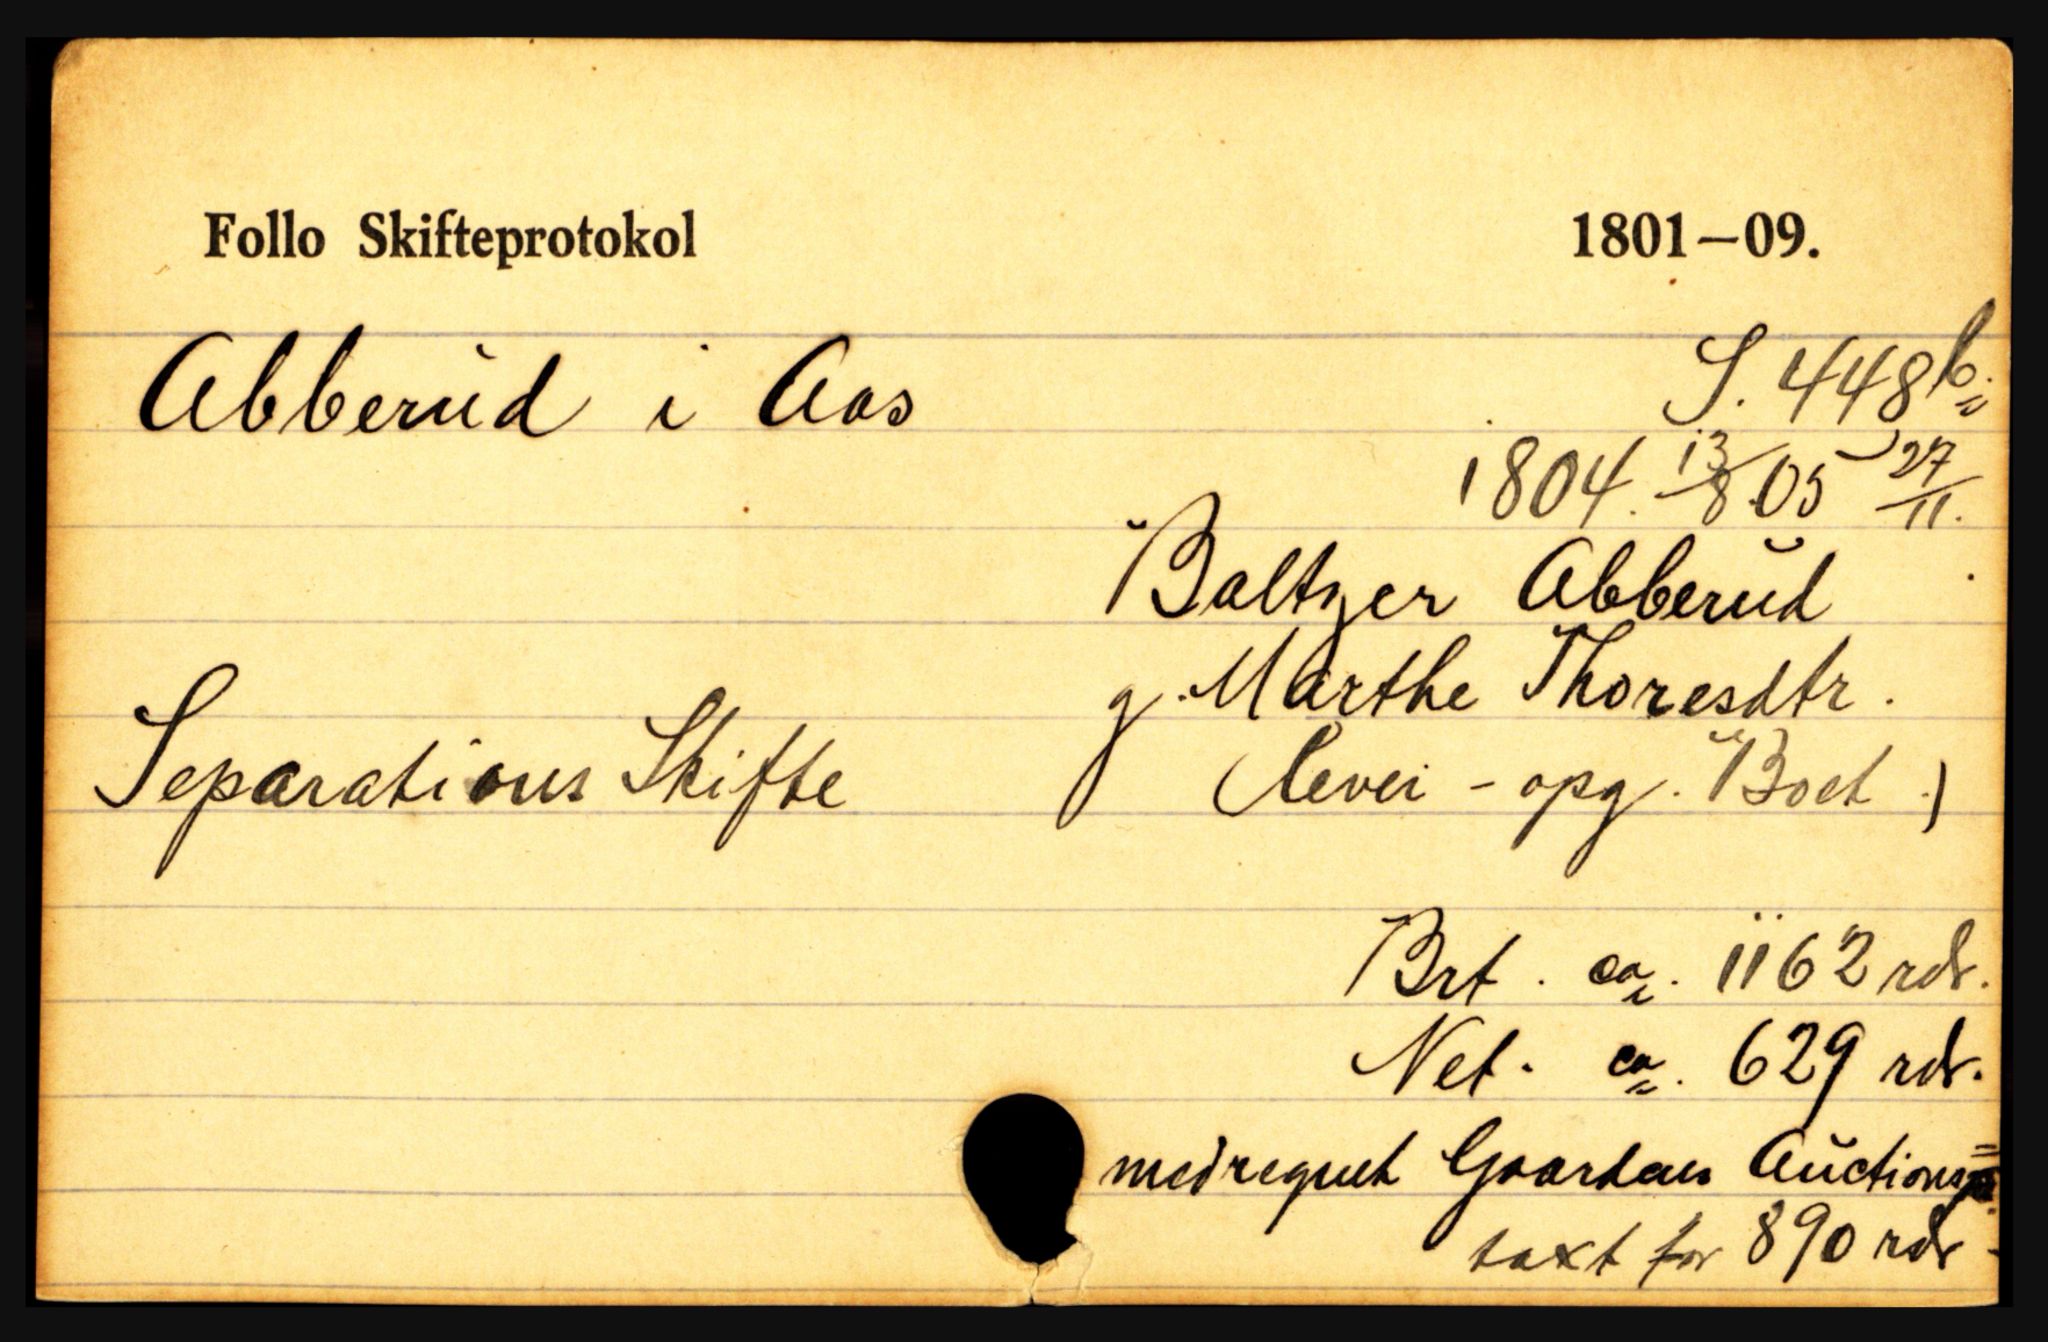 Follo Skifteprotokol 1801—09.
Abberud i Aas S. 448 b.
1804. 13/8 05 27/11.
Baltzer Abberud
g. Marthe Thoresdtr.
Separations Skifte (Revei - opg. Boet.)
Brt. ca. 1162 rdr.
Net. ca. 629 rdr.
medregnet Gaardens Auctions
taxt for 890 rdr